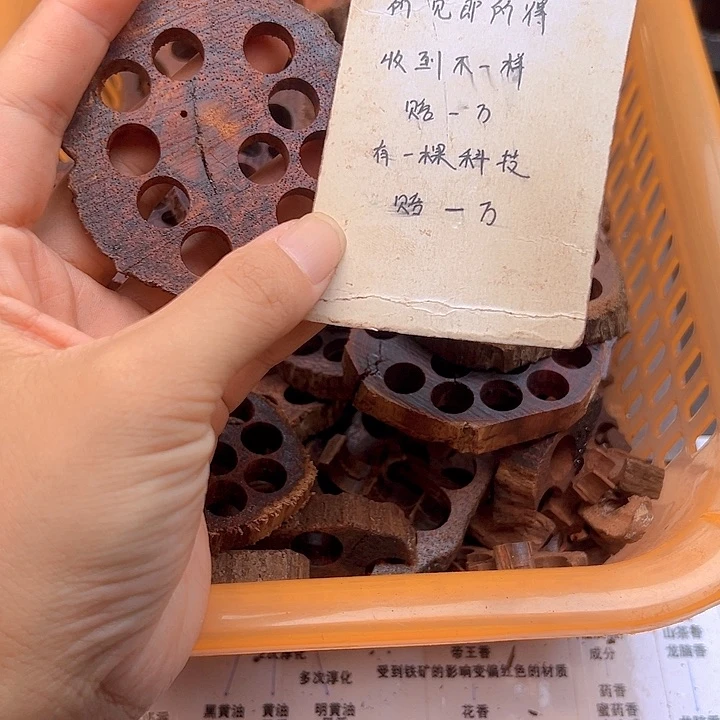 所见即所得
收到不一样
赔一万
有一棵科技
赔一万
帝王香
成分
山茶香
龙脑香
多次淳化
受到铁矿的影响变偏红色的材质
药香
黑黄油
黄油
明黄油
花香
蜜药香